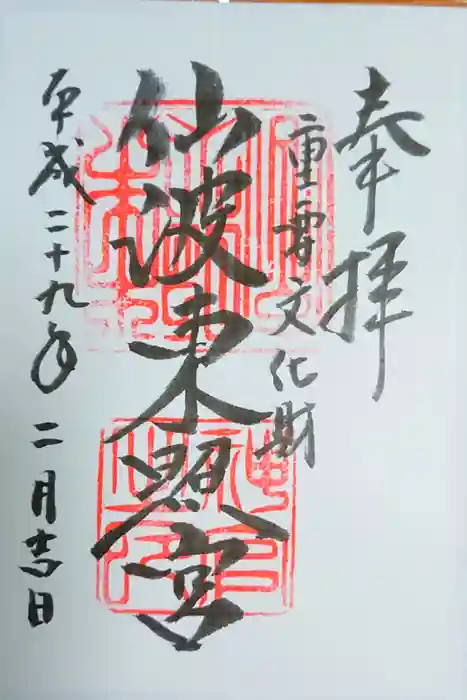 奉拝
重要文化財
仙波東照宮
平成二十九年二月吉日